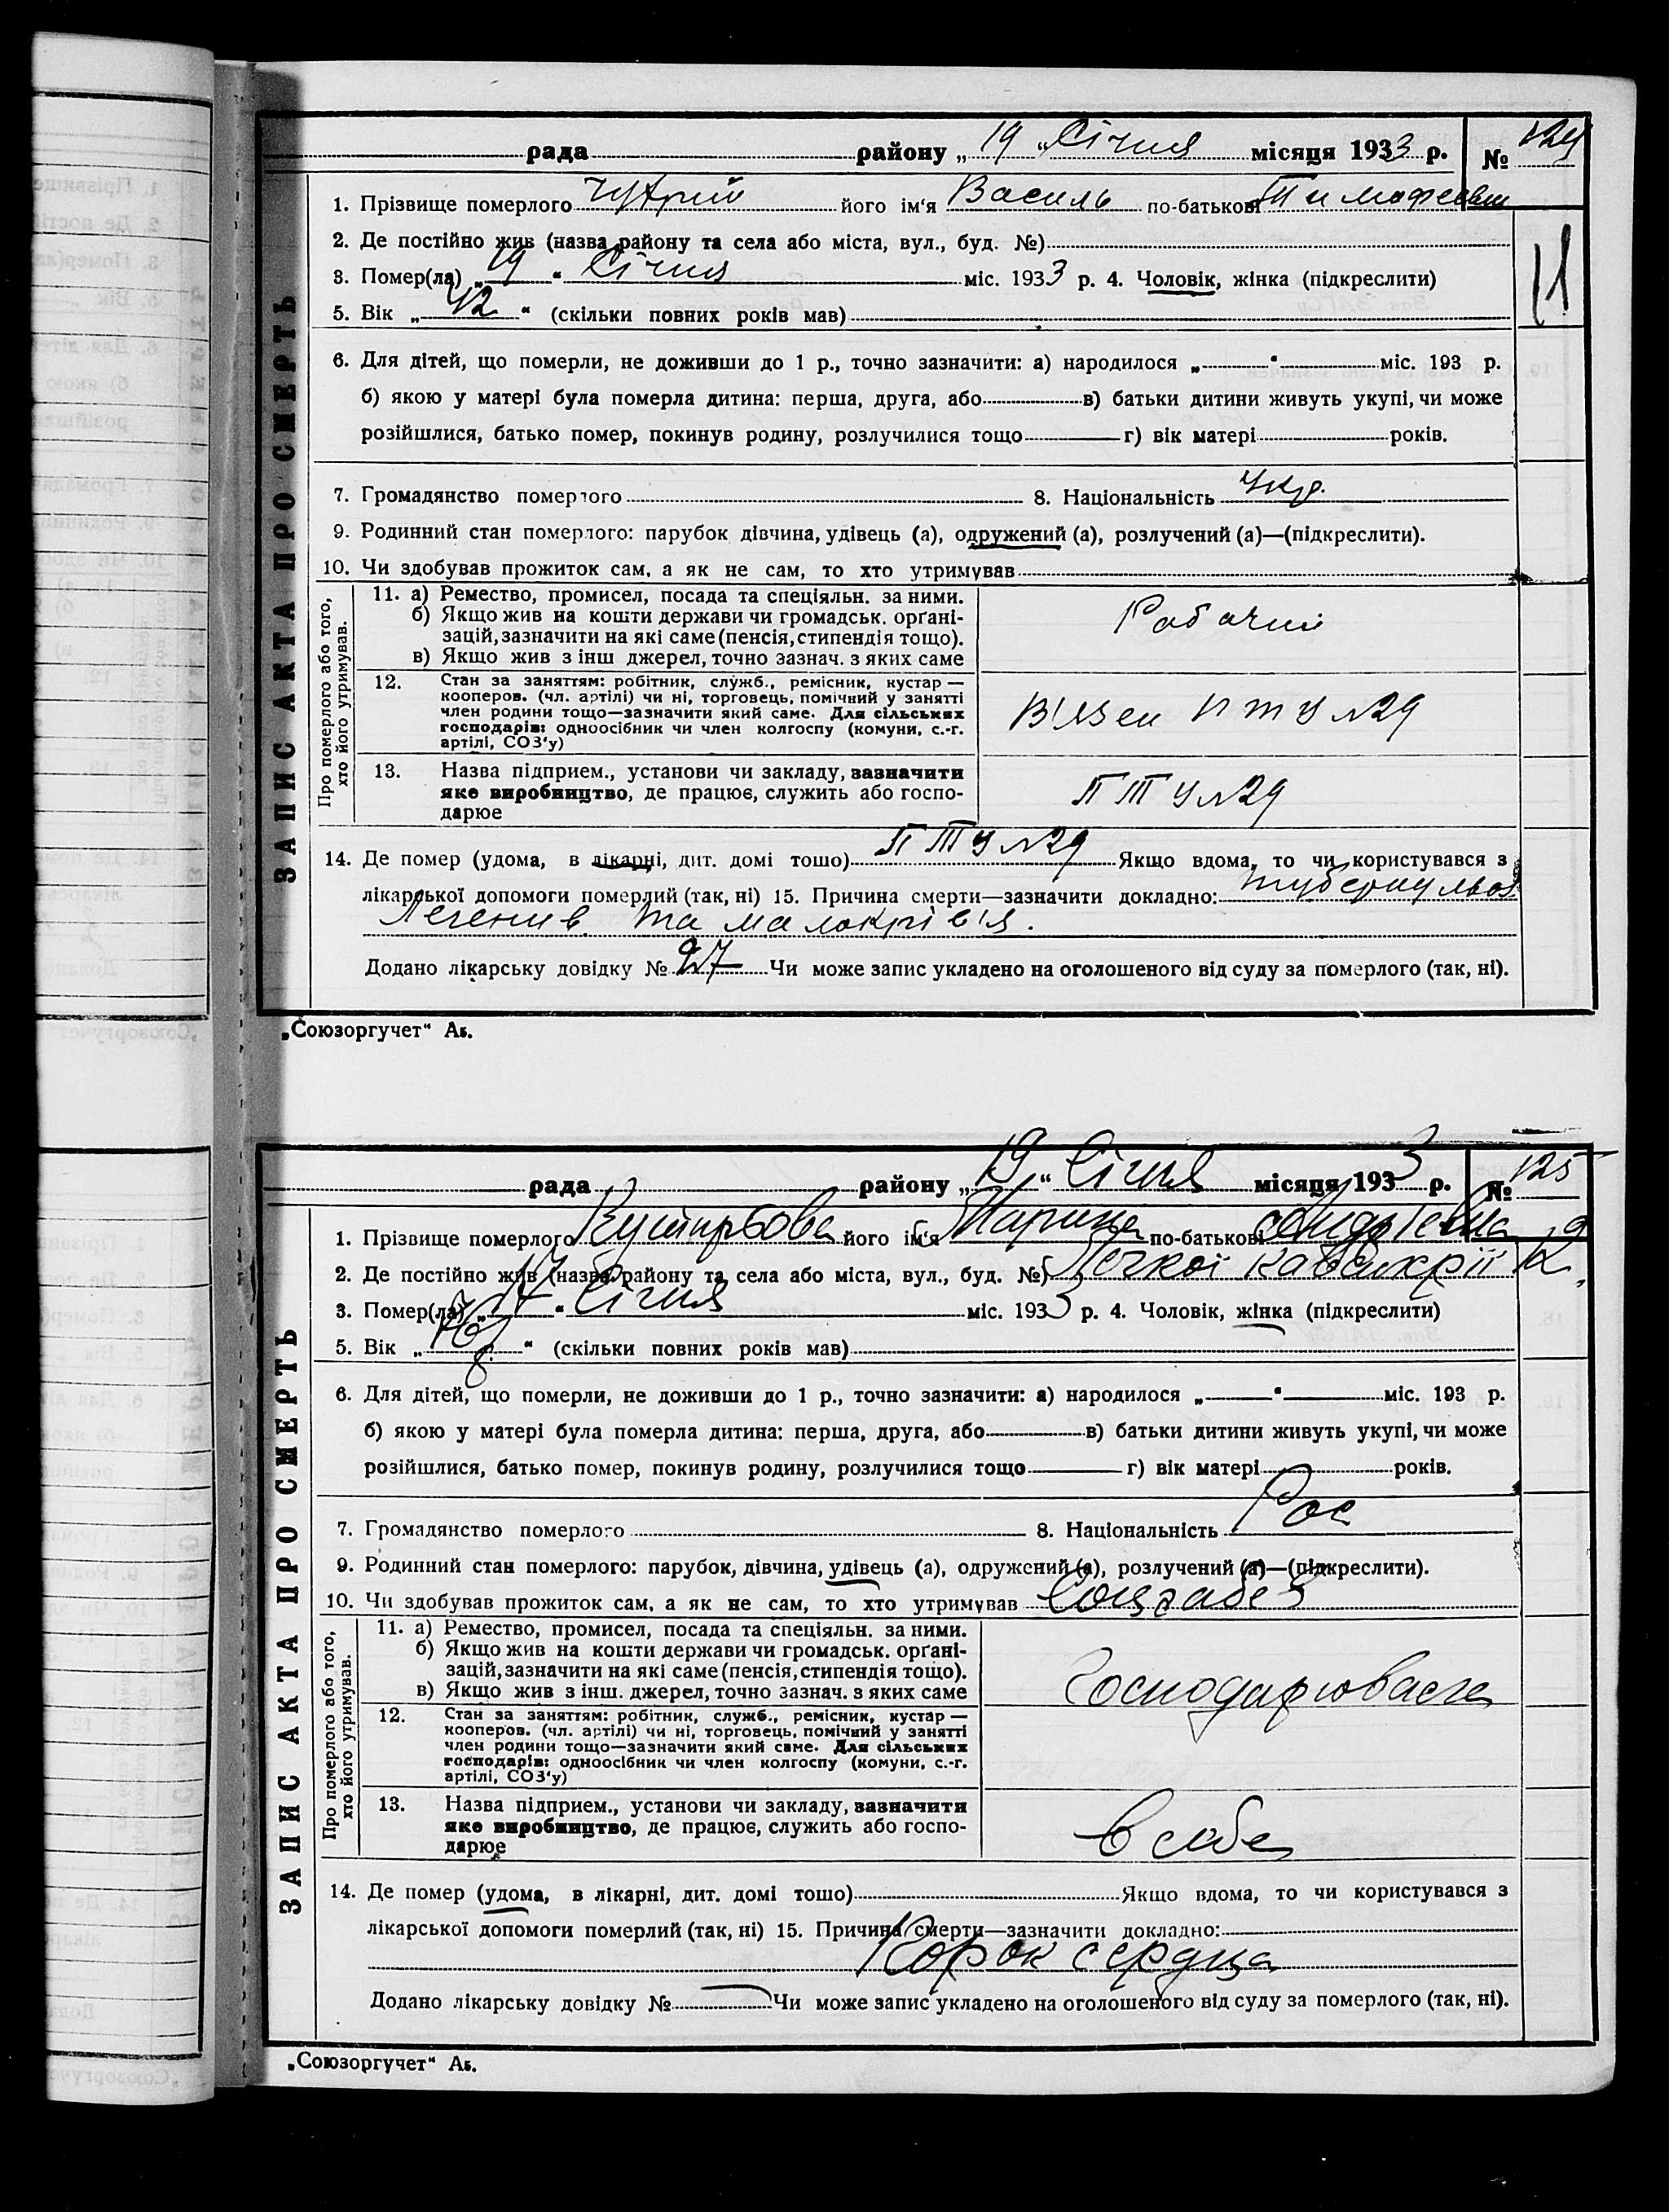 рада района „19“ Січня місяця 1933 р. № 124
1. Прізвище померлого його ім'я Василь по-батькові Тимофеевич
2. Де постійно жив (назва району та села або міста, вул., буд. №)
3. Помер(ла) „19“ Січня міс. 1933 р. 4. Чоловік, жінка (підкреслити)
5. Вік „42“ (скільки повних років мав)
11
6. Для дітей, що померли, не доживши до 1 р., точно зазначити: а) народилося „ “ міс. 193 р.
б) якою у матері була померла дитина: перша, друга, або в) батьки дитини живуть укупі, чи може
розійшлися, батько помер, покинув родину, розлучилися тощо г) вік матері років.
7. Громадянство померлого 8. Національність Укр.
9. Родинний стан померлого: парубок дівчина, удівець (а), одружений (а), розлучений (а)—(підкреслити).
10. Чи здобував прожиток сам, а як не сам, то хто утримував
ЗАПИС АКТА ПРО СМЕРТЬ
Про померлого або того,
хто його утримував.
11. а) Ремество, промисел, посада та спеціяльн. за ними.
б) Якщо жив на кошти держави чи громадськ. орґані-
зацій, зазначити на які саме (пенсія, стипендія тощо).
в) Якщо жив з інш джерел, точно зазнач. з яких саме
Рабочий
12. Стан за заняттям: робітник, служб., ремісник, кустар —
кооперов. (чл. артілі) чи ні, торговець, помічний у занятті
член родини тощо—зазначити який саме. Для сільських
господарів: одноосібник чи член колгоспу (комуни, с.-г.
артілі, СОЗ'у)
Вязен ПТУ №29
13. Назва підприєм., установи чи закладу, зазначити
яке виробництво, де працює, служить або госпо-
дарює
ПТУ №29
14. Де помер (удома, в лікарні, дит. домі тощо) ПТУ №29 Якщо вдома, то чи користувався з
лікарської допомоги померлий (так, ні) 15. Причина смерти—зазначити докладно: туберкульоз
Легенив та малокрів'я.
Додано лікарську довідку № 27 Чи може запис укладено на оголошеного від суду за померлого (так, ні).
„Союзоргучет“ Аб.
рада району „19“ Січня місяця 1933 р. № 125
1. Прізвище померлого його ім'я по-батькові
2. Де постійно жив (назва району та села або міста, вул., буд. №) Легкої кавалерії
3. Помер(ла) „17“ Січня міс. 1933 р. 4. Чоловік, жінка (підкреслити)
5. Вік „76 “ (скільки повних років мав)
6. Для дітей, що померли, не доживши до 1 р., точно зазначити: а) народилося „ “ міс. 193 р.
б) якою у матері була померла дитина: перша, друга, або в) батьки дитини живуть укупі, чи може
розійшлися, батько помер, покинув родину, розлучилися тощо г) вік матері років.
7. Громадянство померлого 8. Національність Рос
9. Родинний стан померлого: парубок, дівчина, удівець (а), одружений (а), розлучений (а)—(підкреслити).
10. Чи здобував прожиток сам, а як не сам, то хто утримував Соцзабез
ЗАПИС АКТА ПРО СМЕРТЬ
Про померлого або того,
хто його утримував.
11. а) Ремество, промисел, посада та спеціяльн. за ними.
б) Якщо жив на кошти держави чи громадськ. орґані-
зацій, зазначити на які саме (пенсія, стипендія тощо).
в) Якщо жив з інш. джерел, точно зазнач. з яких саме
12. Стан за заняттям: робітник, служб., ремісник, кустар —
кооперов. (чл. артілі) чи ні, торговець, помічний у занятті
член родини тощо—зазначити який саме. Для сільських
господарів: одноосібник чи член колгоспу (комуни, с.-г.
артілі, СОЗ'у)
13. Назва підприєм., установи чи закладу, зазначити
яке виробництво, де працює, служить або госпо-
дарює
в себе
14. Де помер (удома, в лікарні, дит. домі тощо) Якщо вдома, то чи користувався з
лікарської допомоги померлий (так, ні) 15. Причина смерти—зазначити докладно:
Порок сердца
Додано лікарську довідку № Чи може запис укладено на оголошеного від суду за померлого (так, ні).
„Союзоргучет“ Аб.